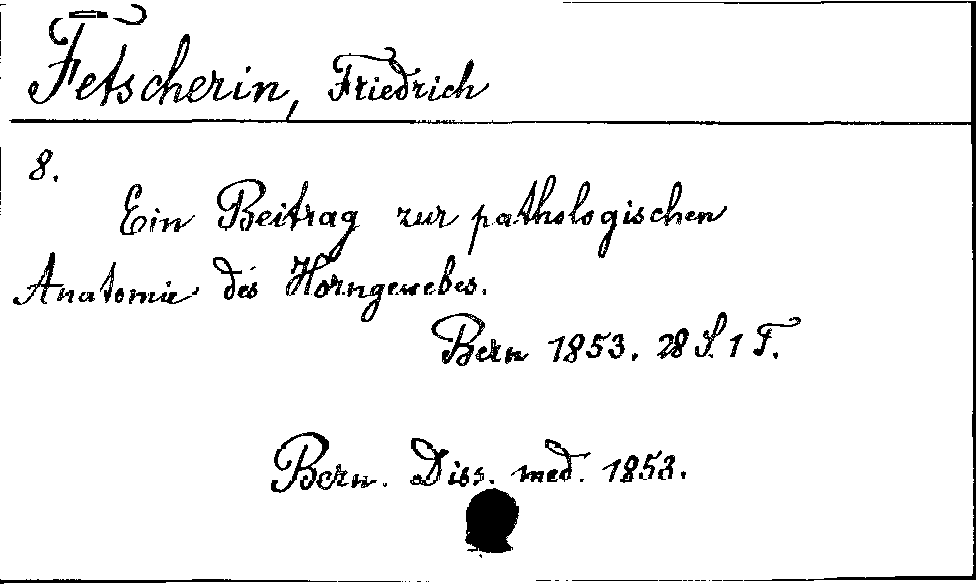 Fetscherin, Friedrich
8.
Ein Beitrag zur pathologischen
Anatomie des Horngewebes.
Bern 1853. 28 S. 1 T.
Bern. Diss. med. 1853.